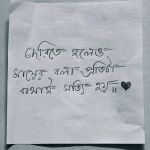 দেরিতে হলেও
মায়ের বলা প্রতিটা
কথাই সত্যি হয়॥ 🖤